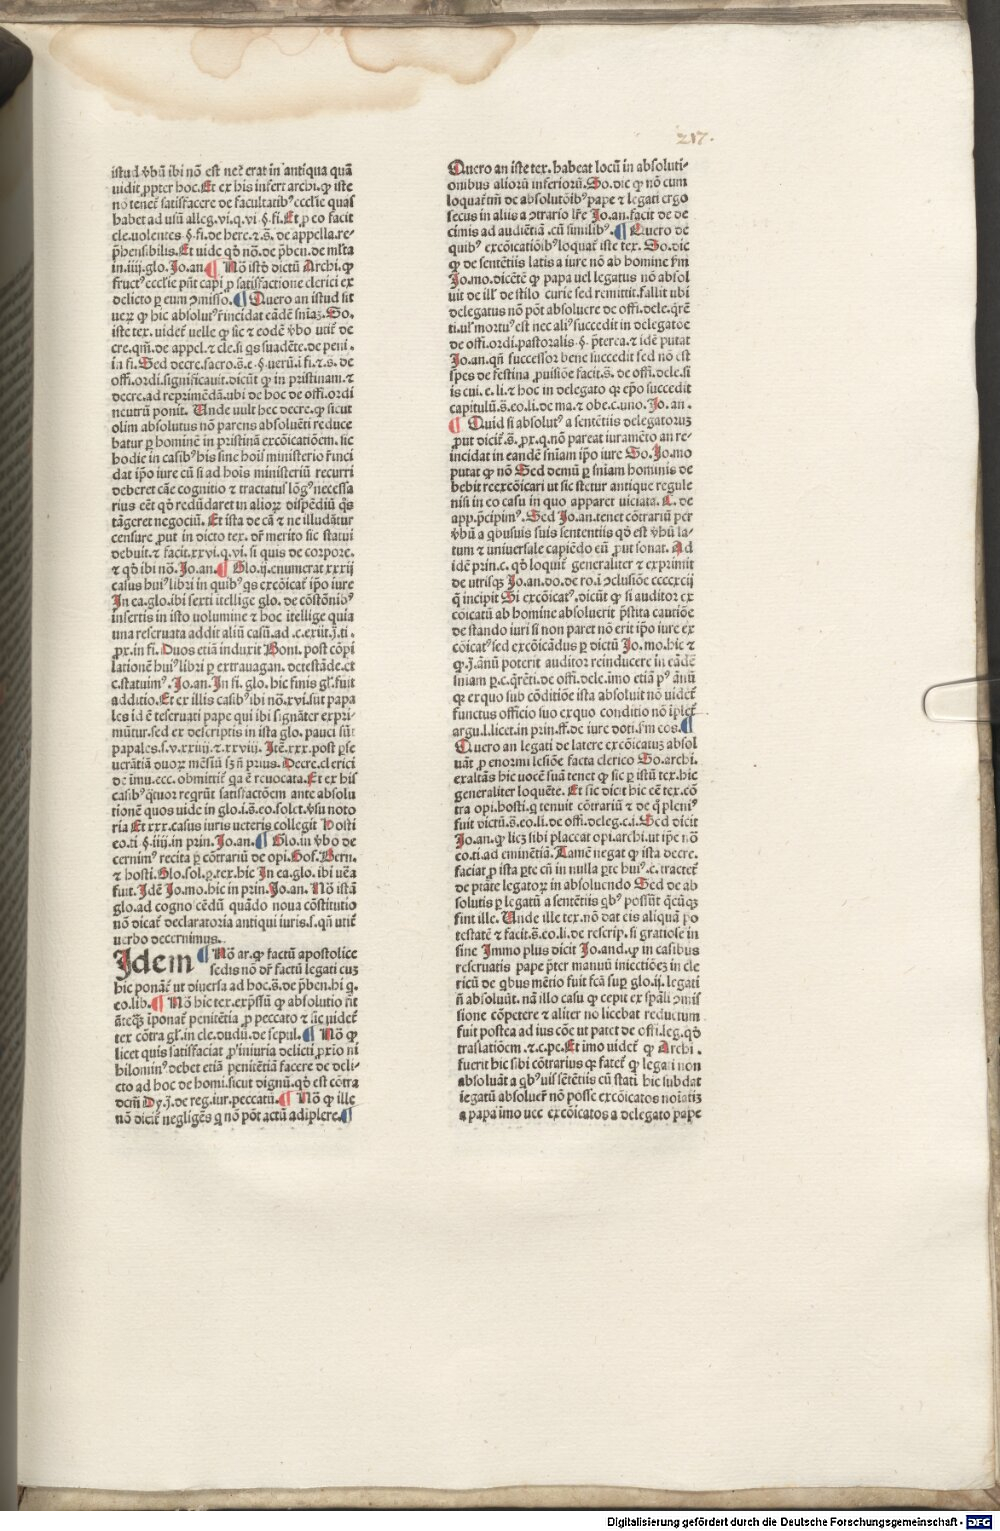 217.
istud vbū ibi nō est nec̄ erat in antiqua quā
uidit ꝓpter hoc. Et ex his infert archi. ꝙ iste
no tenet̄ satisfacere de facultatibꝰ ecclsie quas
habet ad usū alleg. vi. q. vi §. fi. Et ꝓ eo facit
cle. uolentes §. fi. de here. ⁊ s̄. de appella. re-
p̄hensibilis. Et uide qd̓ nō. de p̄ben. de ml̓ta
in. iiij. glo. Jo. an. ¶ Nō istd̓ dictū Archi. ꝙ
fructꝰ ecclsie pn̄t capi ꝓ satisfactione clerici ex
delicto ꝑ eum ↄmisso. ¶ Quero an istud sit
ueꝝ ꝙ hic absolutꝰ r̄incidat eādē sn̄iaꝫ. So.
iste tex. uidet̄ uelle ꝙ sic ⁊ eodē v̓bo utit̄ de
cre. qm̄. de appel. ⁊ cle. si qs suadēte. de peni.
ia fi. Sed decre. sacro. s̄. e. §. uerū. i fi. ⁊. s̄. de
offi. ordi. significauit. dicūt ꝙ in pristinam. ⁊
decre. ad reprimēdā. ubi de hoc de offi. ordi
neutrū ponit. Unde uult hec decre. ꝙ sicut
olim absolutus nō parens absoluēti reduce
batur ꝑ hominē in pristinā excōicatiōem. sic
hodie in casibꝰ his sine hoīs ministerio r̄inci
dat ip̄o iure cū si ad hoīs ministeriū recurri
deberet cāe cognitio ⁊ tractatus lōgꝰ necessa
rius eēt qd̓ redūdaret in alioꝝ dispēdiū qs̄
tāgeret negociū. Et ista de cā ⁊ ne illudātur
censure ꝓut in dicto tex. dr̄ merito sic statui
debuit. ⁊ facit. xxvi. q. vi. si quis de corpore.
⁊ qd̓ ibi nō. Jo. an. ¶ Glo. ij. enumerat xxxij
casus huiꝰ libri in quibꝰ qs excōicat̄ ip̄o iure
In ea. glo. ibi sexti itellige glo. de cōstōnibꝰ
insertis in isto volumine ⁊ hoc itellige quia
una reseruata addit aliū casū. ad. c. exiit. j̄. ti.
ꝓx. in fi. Duos etiā induxit Boni. post cōpi
lationē huiꝰ libri ꝑ extrauagan. detestāde. et
c. statuimꝰ. Jo. an. In fi. glo. hic finis gl̓. fuit
additio. Et ex illis casibꝰ ibi nō. xvi. sūt papa
les id ē reseruati pape qui ibi signāter expri-
mūtur. sed ex descriptis in ista glo. pauci sūt
papales. s. v. xxiiij. ⁊. xxviij. Jtē. xxx. post ꝑse
uerātiā duoꝝ mēsiū sꝫ n̄ prius. Decre. clerici
de īmu. ecc. obmittit̄ qa ē reuocata. Et ex his
casibꝰ q̄tuor reqrūt satisfactōem ante absolu
tionē quos uide in glo. i. s̄. eo. solet. v̓su noto
ria Et xxx. casus iuris ueteris collegit Hosti
eo. ti §. iiij. in prin. Jo. an. ¶ Glo. in v̓bo de
cernimꝰ recita ꝑ cōtrariū de opi. Gof. Bern.
⁊ hosti. Glo. sol. ꝑ. tex. hic In ea. glo. ibi uēa
fuit. Idē Jo. mo. hic in prin. Jo. an. Nō istā
glo. ad cogno cēdū quādo noua cōstitutio
nō dicat̄ declaratoria antiqui iuris. s. qn̄ utit̄
uerbo decernimus.
Idem ¶ Nō ar. ꝙ factū apostolice
sedis nō dr̄ factū legati cuꝫ
hic ponat̄ ut diuersa ad hoc. s̄. de p̄ben. hi q.
eo. lib. ¶ Nō hic tex. exp̄ssū ꝙ absolutio fit
āteqꝫ īponat̄ penitētia ꝓ peccato ⁊ sic uidet̄
tex cōtra gl̓. in cle. dudū. de sepul. ¶ Nō ꝙ
licet quis satisfaciat ꝓ iniuria delicti ꝓxio ni
hilominꝰ debet etiā penitētiā facere de deli-
cto ad hoc de homi. sicut dignū. qd̓ est cōtra
dcm̄ Dy. j̄. de reg. iur. peccatū. ¶ Nō ꝙ ille
nō dicit̄ negligēs q nō pōt actū adiplere. ¶
Quero an iste tex. habeat locū in absoluti-
onibus aliorū inferiorū. So. dic ꝙ nō cum
loquat̄ tm̄ de absolutōibꝰ pape ⁊ legati ergo
secus in aliis a ↄtrario l̓re Jo. an. facit de de
cimis ad audiētiā. cū similibꝰ. ¶ Quero de
quibꝰ excōicatiōibꝰ loquat̄ iste tex. So. dic
ꝙ de sentētiis latis a iure nō ab homine s̓m
Jo. mo. dicētē ꝙ papa uel legatus nō absol
uit de ill̓ de stilo curie sed remittit. fallit ubi
delegatus nō pōt absoluere de offi. dele. q̄rē
ti. ul̓ mortuꝰ est nec aliꝰ succedit in delegatōe
de offi. ordi. pastoralis. §. p̄terea. ⁊ idē putat
Jo. an. qn̄ successor bene succedit sed nō est
spes de festina ꝓuisiōe facit. s̄. de offi. dele. si
is cui. e. li. ⁊ hoc in delegato qꝛ ep̄o succedit
capitulū. s̄. eo. li. de ma. ⁊ obe. c. uno. Jo. an.
¶ Quid si absolutꝰ a sentētiis delegatorū
ꝓut dicit̄. s̄. ꝓx. q. nō pareat iuramēto an re-
incidat in eandē sn̄iam ip̄o iure So. Jo. mo
putat ꝙ nō Sed demū ꝑ sn̄iam hominis de
bebit reexcōicari ut sic stetur antique regule
nisi in eo casu in quo apparet uiciata. C. de
app. p̄cipimꝰ. Sed Jo. an. tenet cōtrariū per
v̓bū a qbusuis suis sententiis qd̓ est v̓bū la-
tum ⁊ uniuersale capiēdo eū ꝓut sonat. Ad
idē prin. c. qd̓ loquit̄ generaliter ⁊ exprimit
de utrisqꝫ Jo. an. do. de ro. i ↄclusiōe ccccxcij
q̄ incipit Si excōicatꝰ. dicūt ꝙ si auditor ex
cōicatū ab homine absoluerit p̄stita cautiōe
de stando iuri si non paret nō erit ip̄o iure ex
cōicatꝰ sed excōicādus ꝑ dictū Jo. mo. hic ⁊
ꝙ. j̄. ānū poterit auditor reinducere in eādē
sniam ꝑ. c. q̄rēti. de offi. dele. īmo etiā pꝰ ānū
qꝛ exquo sub cōditiōe ista absoluit nō uidet̄
functus officio suo exquo conditio nō īplet̄
argu. l. licet. in prin. ff. de iure doti. s̓m eos. ¶
Quero an legati de latere excōicatuꝫ absol
uāt ꝓ enormi lesiōe facta clerico So. archi.
exaltās hic uocē suā tenet ꝙ sic ꝑ istū tex. hic
generaliter loquēte. Et sic dicit hic eē tex. cō
tra opi. hosti. q tenuit cōtrariū ⁊ de q̄ pleniꝰ
fuit victū. s̄. eo. li. de offi. deleg. c. i. Sed dicit
Jo. an. ꝙ licꝫ sibi placeat opi. archi. ut ip̄e nō
eo. ti. ad eminētiā. Tamē negat ꝙ ista decre.
faciat ꝓ ista ꝑte cū in nulla ꝑte huiꝰ. c. tractet̄
de ptāte legatoꝝ in absoluendo Sed de ab
solutis ꝑ legatū a sentētiis qbꝰ possūt q̄cūqꝫ
sint ille. Unde ille tex. nō dat eis aliquā po
testatē ⁊ facit. s̄. eo. li. de rescrip. si gratiose in
fine Immo plus dicit Jo. and. ꝙ in casibus
reseruatis pape p̄ter manuū iniectiōeꝫ in cle
ricū de qbus mērio fuit fcā suꝑ glo. ij. legati
n̄ absoluūt. nā illo casu ꝙ cepit ex spāli ↄmis
sione cōpetere ⁊ aliter no licebat reductum
fuit postea ad ius cōe ut patet de offi. leg. qd̓
traslatiōem. ⁊. c. pe. Et imo uidet̄ ꝙ Archi.
fuerit hic sibi cōtrarius qꝛ fatet̄ ꝙ legati non
absoluāt a qbꝰuis sētētiis cū stati hic subdat
legatū absoluer̄ nō posse excōicatos noiatiꝫ
a papa īmo ucc excōicatos a delegato pape
Digitalisierung gefördert durch die Deutsche Forschungsgemeinschaft - DFG